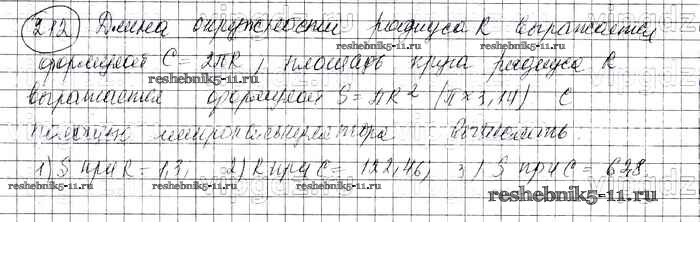 212 Длина окружности радиуса R выражается
reshebnik5-11.ru reshebnik5-11.ru
формулой C = 2πR, площадь круга радиуса R
reshebnik5-11.ru
выражается формулой S = πR² (π ≈ 3,14) С
reshebnik5-11.ru
помощью микрокалькулятора вычислить
1) S при R = 1,3, 2) R при C = 122,46, 3) S при C = 628
reshebnik5-11.ru reshebnik5-11.ru reshebnik5-11.ru